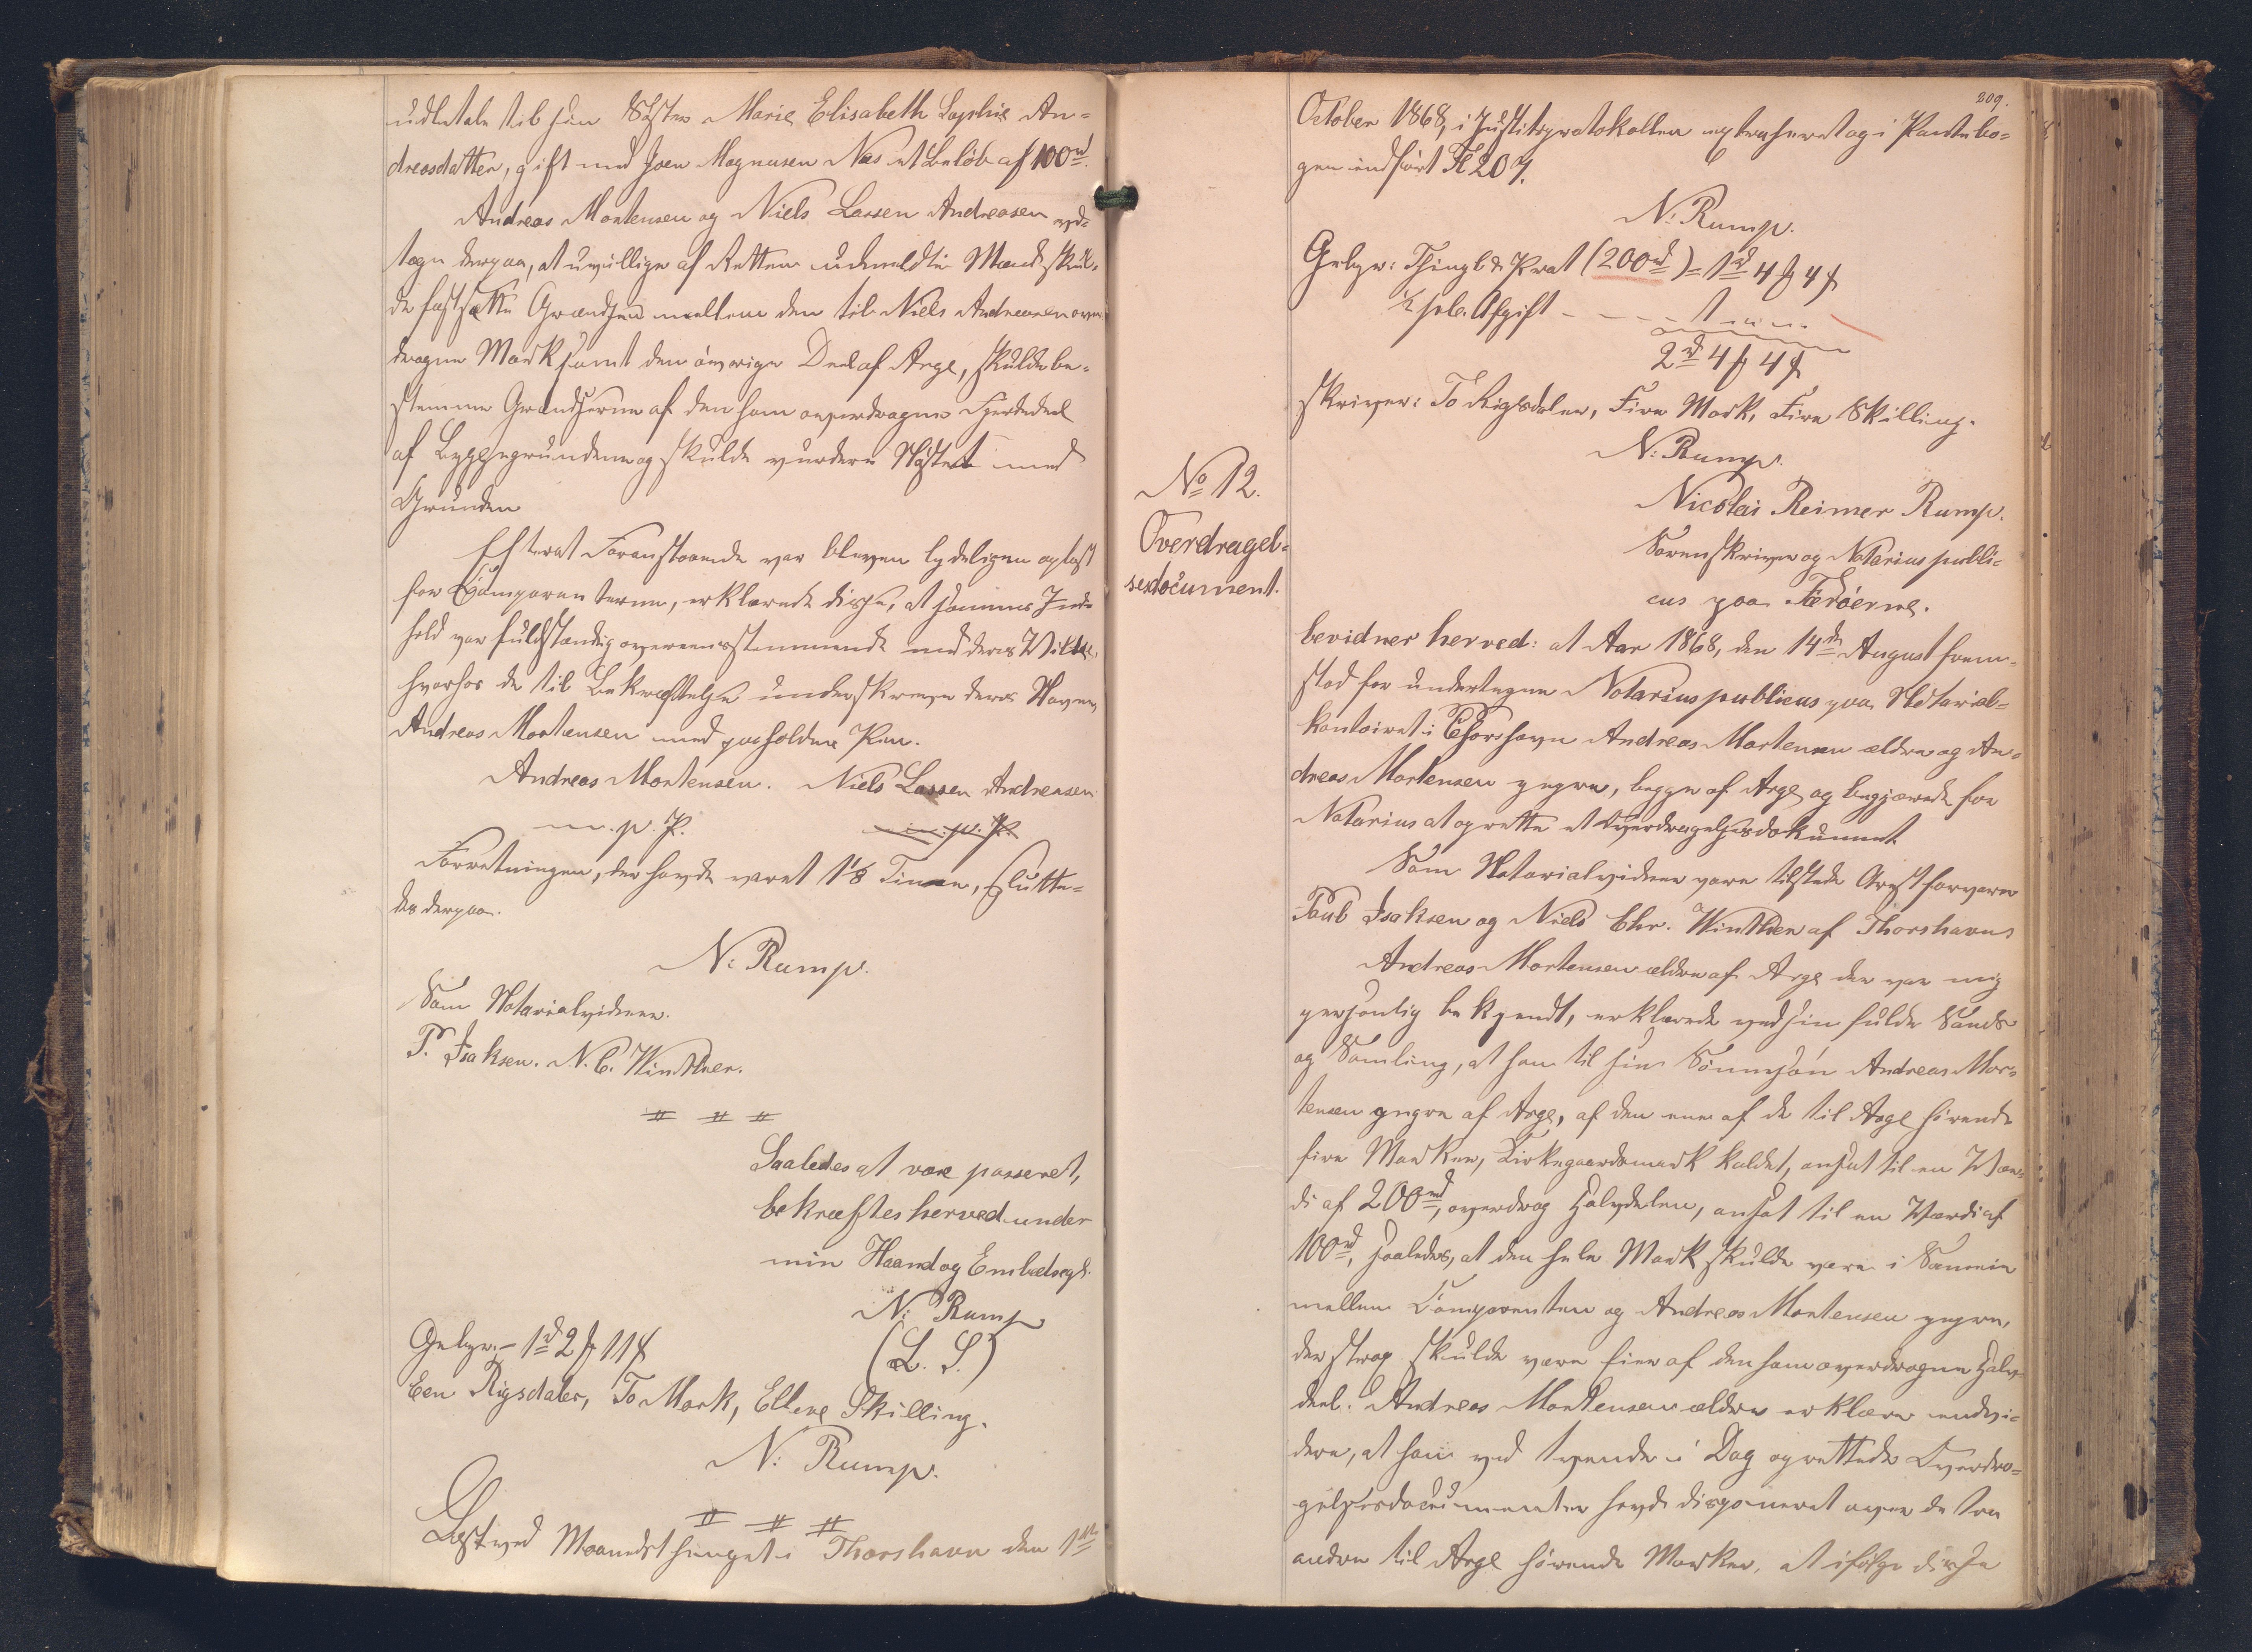 udbetale til sin Søster Marie Elisabeth Sophie An=
dreasdatter, gift med Joen Magnusen Næs et Beløb af 100rd.
Andreas Mortensen og Niels Lassen Andreasen ved=
toge derpaa, at uvillige af Retten udmeldte Mænd skul=
de fastsætte Grændsen mellem den til Niels Andreasen over
dragne Mark samt den øvrige Deel af Arge, skulde be=
stemme Grændserne af den ham overdragne Fjerdedeel
af Byggegrunden og skulde vurdere Høstet med
Grunden
Efterat Foranstaaende var bleven lydeligen oplæst
for Comparenterne, erklærede disse, at sammes Ind=
hold var fuldstændig overeensstemmende med deres Villie,
hvorhos de til Bekræftelse underskreve deres Navne,
Andreas Mortensen med paaholden Pen.
Andreas Mortensen. Niels Lassen Andreasen
m. p. P. m. p. P.
Forretningen, der havde varet 1 1/8 Timer, slutte=
des derpaa.
N: Rump.
Som Notarialvidner.
P. Isaksen. N. C. Winther.
Saaledes at være passeret,
bekræftes herved under
min Haand og Embedssegl.
N: Rump
(L. S.)
Gebyr: 1rd 2 ₥ 11 ß
Een Rigsdaler, To Mark, Elleve Skilling.
N: Rump.
Læst ved Maanedsthinget i Thorshavn den 1ste
209.
October 1868, i Justitsprotokollen extraheret og i Pantebo=
gen indført Fol 207.
N: Rump.
Gebyr: Thingl. & Prot (200rd) = 1rd 4 ₥ 4 ß
½ pCt. Afgift - - - - 1 " " "
2rd 4 ₥ 4 ß
skriver: To Rigsdaler, Fire Mark, Fire Skilling.
N: Rump.
No 12.
Overdragel=
sesdocument.
Nicolai Reimer Rump.
Sorenskriver og Notarius publi=
cus paa Færøerne.
bevidner herved: at Aar 1868, den 14de August frem=
stod for undertegnede Notarius publicus paa Notarial=
kontoiret i Thorshavn Andreas Mortensen ældre og An=
dreas Mortensen yngre, begge af Arge og begjærede for
Notarius at oprette et Overdragelsesdokument
Som Notarialvidner vare tilstede Arrestforvarer
Poul Isaksen og Niels Chr. Winther af Thorshavn
Andreas Mortensen ældre af Arge der var mig
personlig bekjendt, erklærede ved sin fulde Sands
og Samling, at han til sin Sønnesøn Andreas Mor=
tensen yngre af Arge, af den ene af de til Arge hørende
fire Marker, Kirkegaardsmark kaldet, ansat til en Vær=
di af 200rd, overdrog Halvdelen, ansat til en Værdi af
100rd, saaledes, at den hele Mark skulde være i Sameie
mellem Comparenten og Andreas Mortensen yngre,
der strax skulde være Eier af den ham overdragne Halv=
deel. Andreas Mortensen ældre erklærer endvi=
dere, at han ved tvende i Dag oprettede Overdra=
gelsesdocumenter havde disponeret over de tre
andre til Arge hørende Marker, at ifølge disse